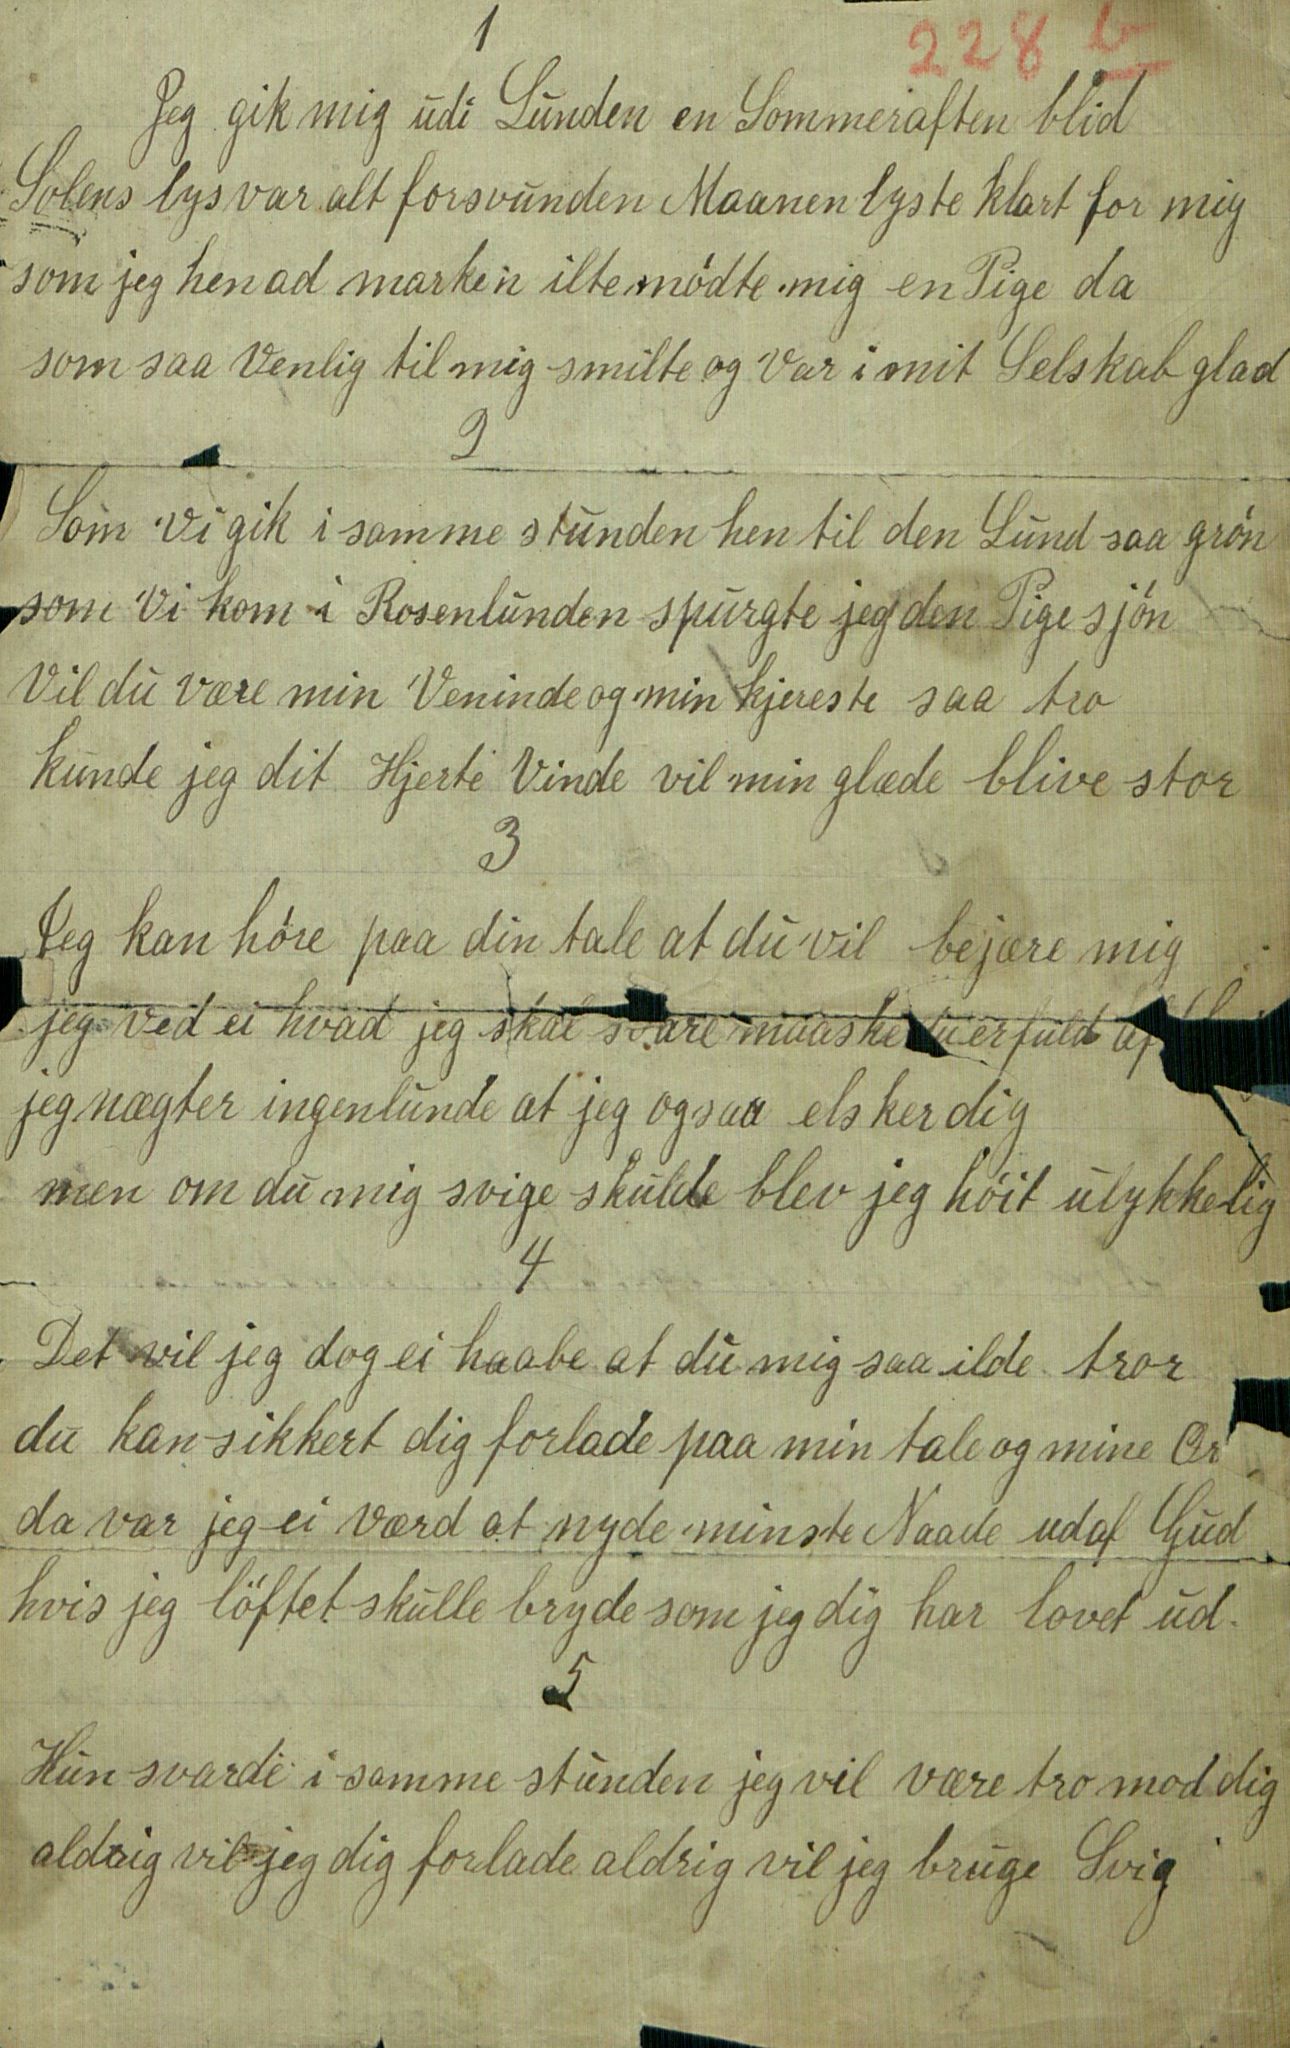 1
228 b
Jeg gik mig udi Lunden en Sommeraften blid
Solens lys var alt forsvunden Maanen lyste klart for mig
som jeg hen ad marken ilte mödte mig en Pige da
som saa Venlig til mig smilte og Var i mit Selskab glad
2
Som Vi gik i samme stunden hen til den Lund saa grön
som Vi kom i Rosenlunden spurgte jeg den Pige sjön
Vil du være min Veninde og min kjereste saa tro
kunde jeg dit Hjerte Vinde vil min glæde blive stor
3
Jeg kan höre paa din tale at du vil bejære mig
jeg ved ei hvad jeg skal svare maaske du er fuld af
jeg nægter ingenlunde at jeg ogsaa elsker dig
men om du mig svige skulde blev jeg höit ulykkelig
4
Det vil jeg dog ei haabe at du mig saa ilde tror
du kan sikkert dig forlade paa min tale og mine Or
da var jeg ei værd at nyde minste Naade udaf Gud
hvis jeg löftet skulle bryde som jeg dig har lovet ud.
5
Hun svarde i samme stunden jeg vil være tro mod dig
aldrig vil jeg dig forlade aldrig vil jeg bruge Svig